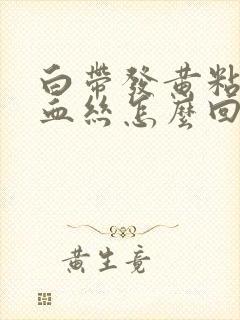 白帶發黃粘
血絲怎麼回
黃生竟